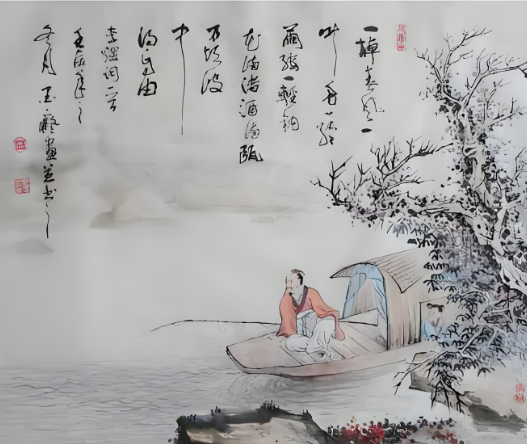 一棹春风一
叶舟一纶
茧缕一轻钩
花满渚酒满瓯
万顷波
中
得自由
李煜词一首
年
冬月画并书